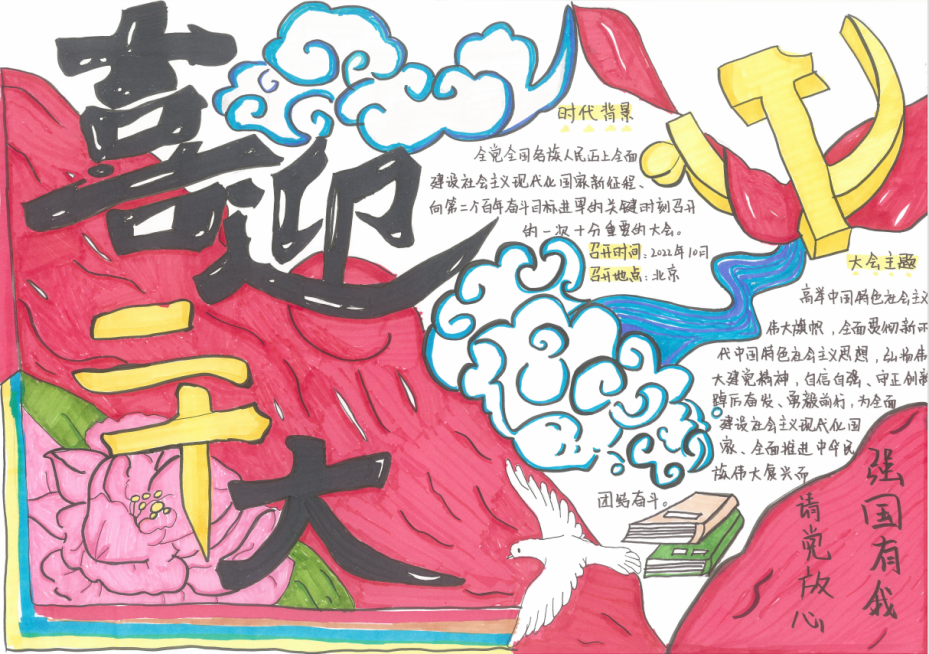 喜迎
二十大
时代背景
全党全国各族人民正上全面
建设社会主义现代化国家新征程、
向第二个百年奋斗目标进军的关键时刻召开
的一次十分重要的大会。
召开时间:2022年10月
召开地点:北京
大会主题
高举中国特色社会主义
伟大旗帜,全面贯彻新时
代中国特色社会主义思想,弘扬伟
大建党精神,自信自强、守正创新
踔厉奋发、勇毅前行,为全面
建设社会主义现代化国
家、全面推进中华民
族伟大复兴而
团结奋斗。
强国有我
请党放心